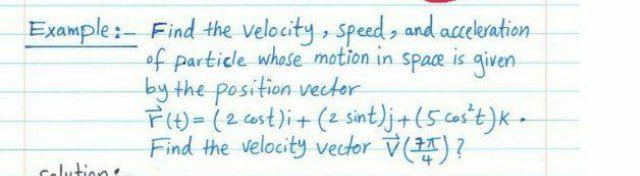 Example:- Find the velocity, speed, and acceleration
of particle whose motion in space is given
by the position vector
r⃗(t) = (2 cost)i + (2 sint)j + (5 cos²t)k.
Find the velocity vector V⃗(7π/4)?
Solution: